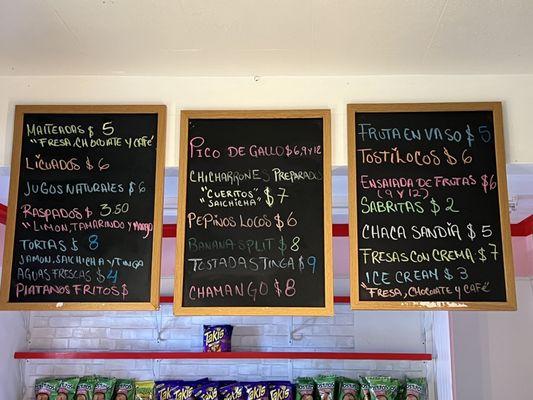 Malteadas $5
"Fresa, Chocolate y Café"
Licuados $6
Jugos Naturales $6
Raspados $3.50
"Limon, Tamarindo y Mango
Tortas $8
Jamon, Salchicha y Tinga
Aguas Frescas $4
Platanos Fritos $
Pico de Gallo $6,9 y 12
Chicharrones Preparado
"Cueritos"
"Salchicha" $7
Pepinos Locos $6
Banana Split $8
Tostadas Tinga $9
Chamango $8
Fruta en Vaso $5
Tostilocos $6
Ensalada de Frutas $6
(9 y 12)
Sabritas $2
Chaca Sandia $5
Fresas con Crema $7
Ice Cream $3
"Fresa, Chocolate y Café"
Takis